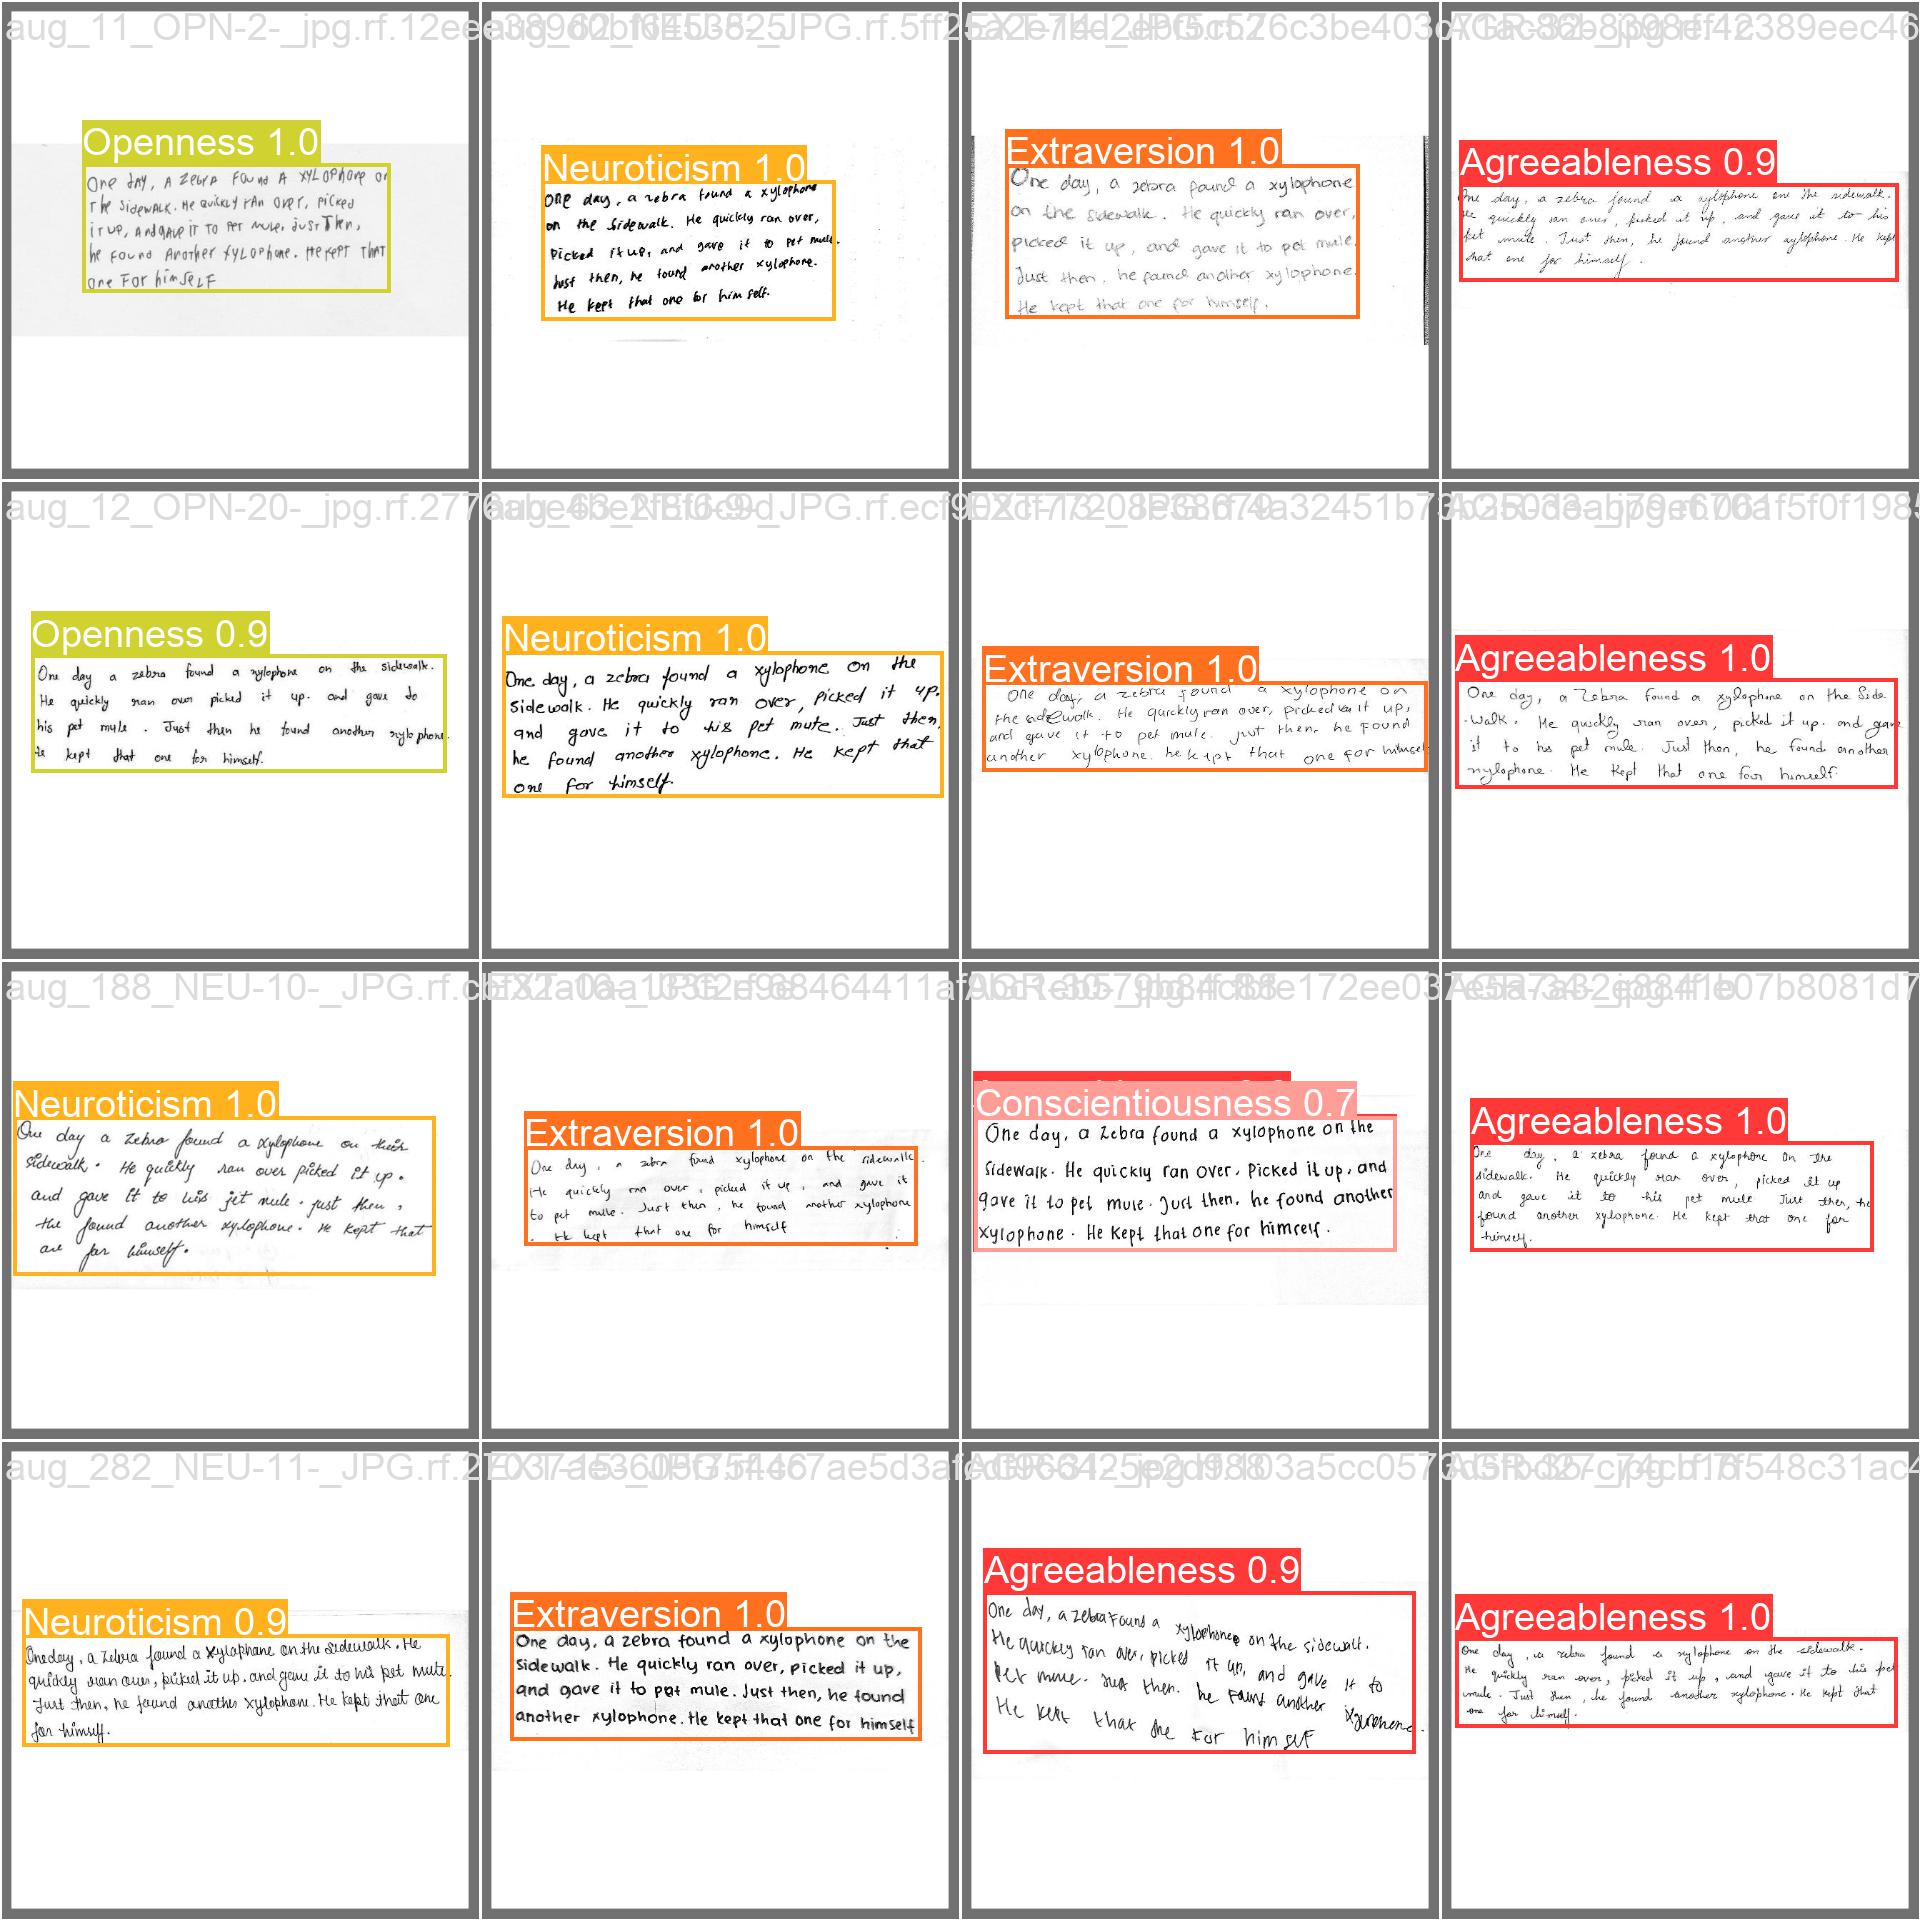 aug_11_OPN-2-_jpg.rf.
Openness 1.0
One dAY, A ZebrA Found A XYLOphone on
The SidewALK. He quickly rAn over, picked
it up, And gAve it To Pet mule. Just Then,
he Found Another XYLOphone. He Kept ThAT
one For himSeLF
Neuroticism 1.0
One day, a zebra found a xylophone
on the Sidewalk. He quickly ran over,
Picked it up, and gave it to pet mule.
Just then, he found another xylophone.
He kept that one for him self.
Extraversion 1.0
One day, a zebra found a xylophone
on the sidewalk. He quickly ran over,
picked it up, and gave it to pet mule.
Just then, he found another xylophone.
He kept that one for himself.
Agreeableness 0.9
One day, a zebra found a xylophone on the sidewalk.
He quickly ran over, picked it up, and gave it to his
pet mule. Just then, he found another xylophone. He kept
that one for himself.
aug_12_OPN-20-_jpg.rf.
Openness 0.9
One day a zebra found a xylophone on the sidewalk.
He quickly ran over picked it up. and gave to
his pet mule. Just then he found another xylophone.
He kept that one for himself.
Neuroticism 1.0
One day, a zebra found a xylophone on the
Sidewalk. He quickly ran over, picked it up.
and gave it to his pet mute. Just then,
he found another xylophone. He kept that
one for himself.
Extraversion 1.0
One day, a zebra found a xylophone on
the sidewalk. He quickly ran over, picked it up,
and gave it to pet mule. Just then, he found
another xylophone. he kept that one for himself
Agreeableness 1.0
One day, a Zebra found a xylophone on the Side
-walk. He quickly ran over, picked it up. and gave
it to his pet mule. Just then, he found another
xylophone. He kept that one for himself.
aug_188_NEU-10-_JPG.rf.
Neuroticism 1.0
One day a Zebra found a xylophone on their
Sidewalk. He quickly ran over picked it up.
and gave it to his jet mule. just then,
the found another xylophone. He kept that
one for himself.
Extraversion 1.0
One day, a zebra found xylophone on the sidewalk.
He quickly ran over, picked it up, and gave it
to pet mule. Just then, he found another xylophone
. He kept that one for himself
Conscientiousness 0.7
One day, a Zebra found a xylophone on the
Sidewalk. He quickly ran over. Picked it up. and
gave it to pet mule. Just then. he found another
xylophone. He Kept that one for himself.
Agreeableness 1.0
One day, a zebra found a xylophone on the
sidewalk. He quickly ran over, picked it up
and gave it to his pet mule Just then, he
found another xylophone. He kept that one for
himself.
aug_282_NEU-11-_JPG.rf.
Neuroticism 0.9
One day, a Zebra found a Xylophone on the sidewalk. He
quickly ran over, picked it up. and gave it to his pet mute.
Just then, he found another xylophone. He kept that one
for himself.
Extraversion 1.0
One day, a zebra found a xylophone on the
sidewalk. He quickly ran over, picked it up,
and gave it to pet mule. Just then, he found
another xylophone. He kept that one for himself
Agreeableness 0.9
One day, a zebra Found a xylophone on the sidewalk.
He quickly ran over, picked it up, and gave it to
Pet mule. Just then. he Found another
He kept that one For him self
Agreeableness 1.0
One day, a zebra found a xylophone on the sidewalk.
He quickly ran over, picked it up, and gave it to his pet
mule. Just then, he found another xylophone. He kept that
one for himself.